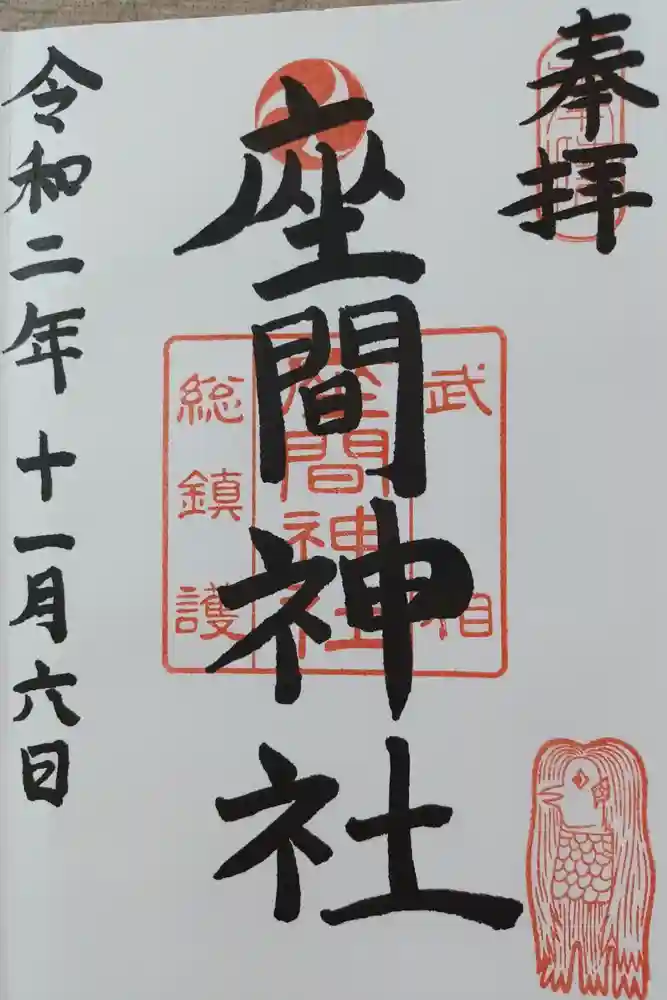 奉拝
武相
座間神社
座間神社
総鎮護
令和二年十一月六日